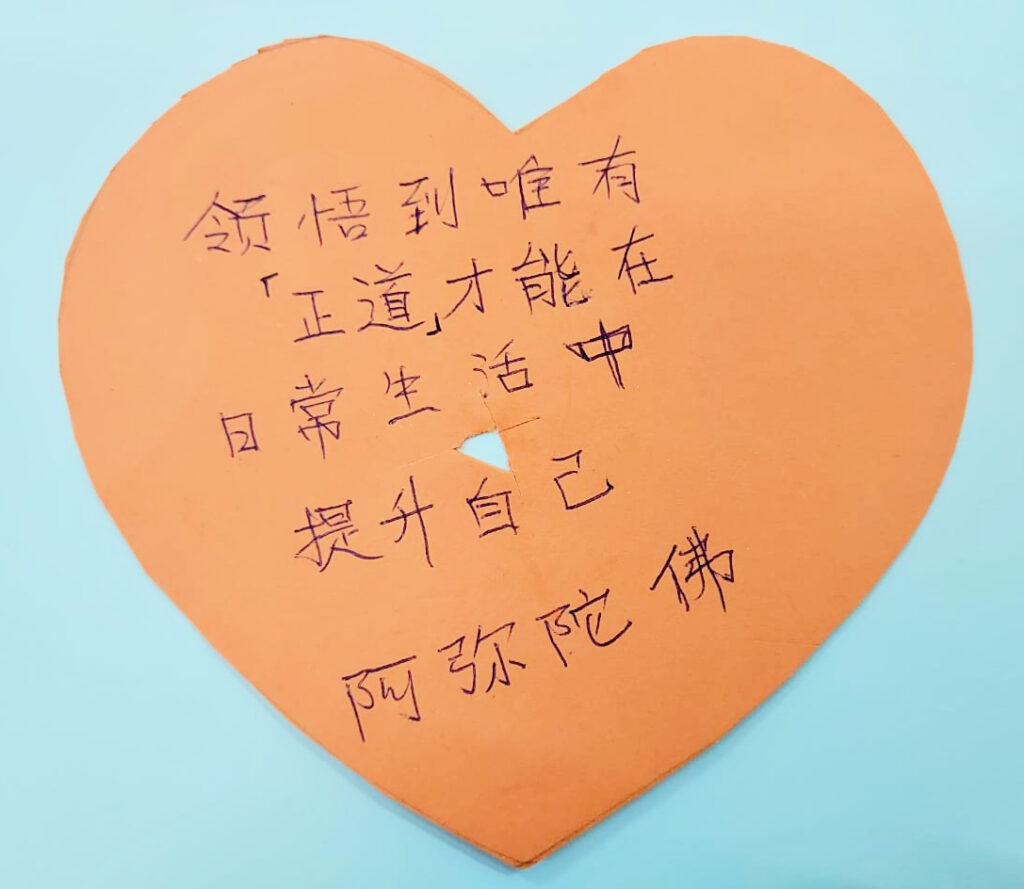 领悟到唯有
「正道」才能在
日常生活中
提升自己
阿弥陀佛